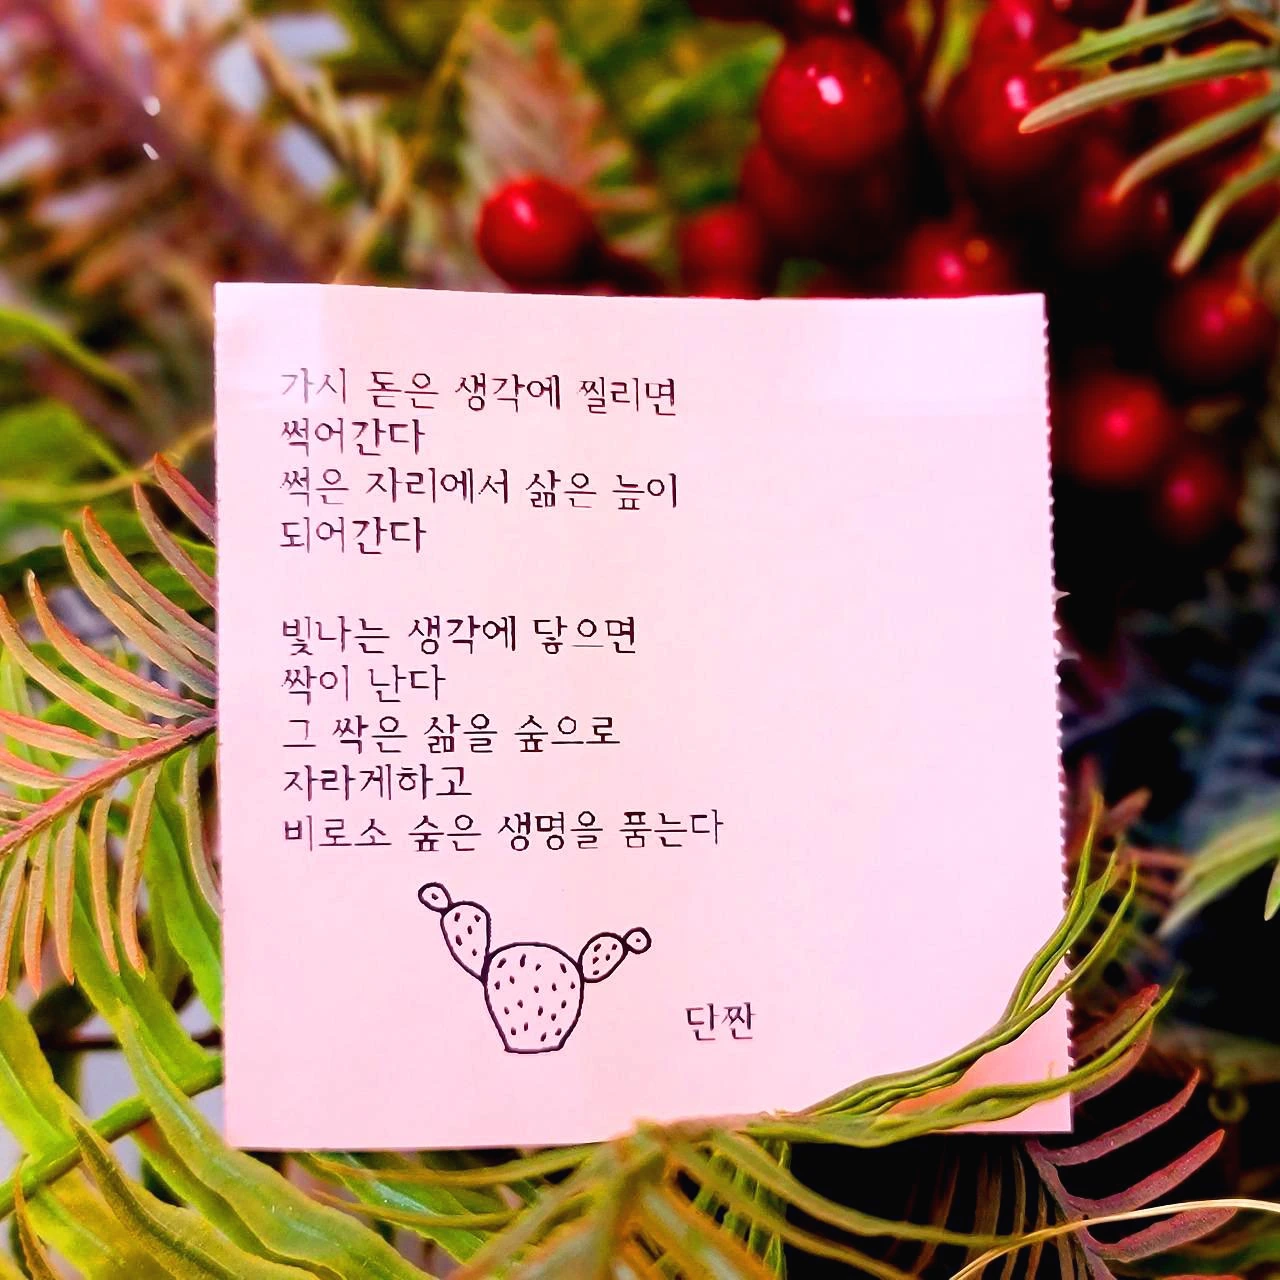 가시 돋은 생각에 찔리면
썩어간다
썩은 자리에서 삶은 늪이
되어간다
빛나는 생각에 닿으면
싹이 난다
그 싹은 삶을 숲으로
자라게하고
비로소 숲은 생명을 품는다
단짠